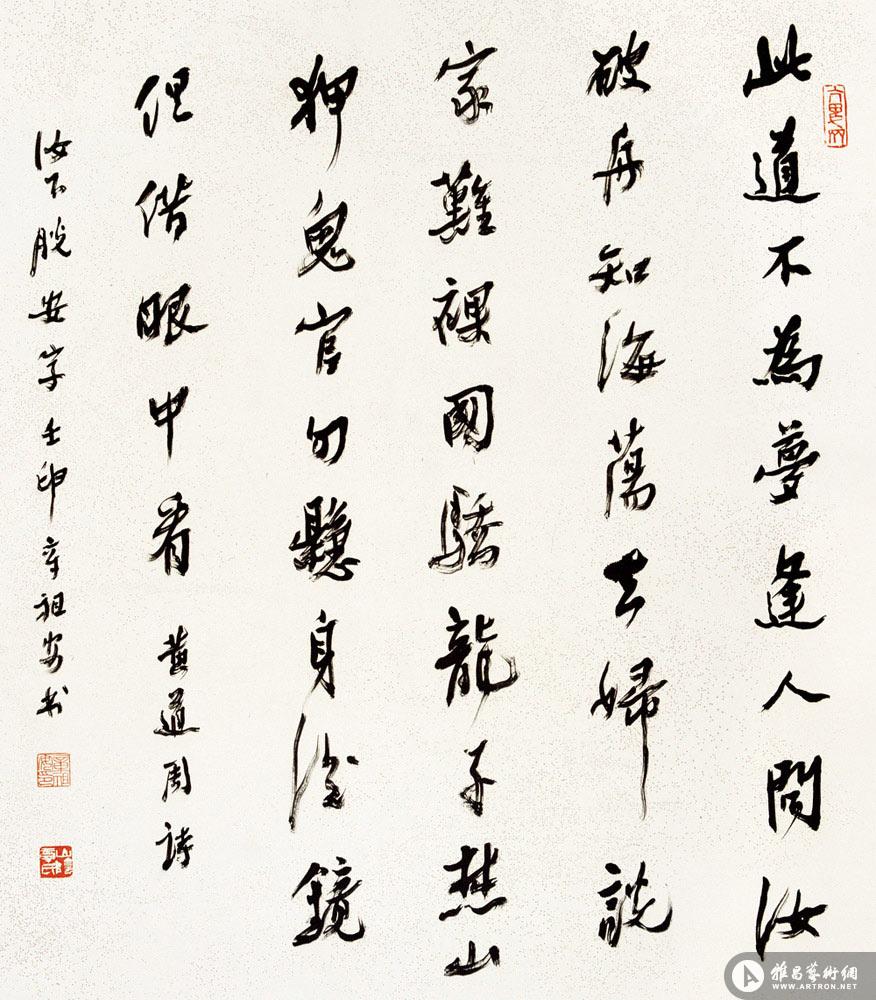 此道不為夢逢人問汝
破舟知海蕩去婦說
家難裸國驕龍子焦山
狎鬼官勿懸身後鏡
但借眼中看 黄道周詩
汝下脫安字 壬申 章祖安書
雅昌藝術網
WWW.ARTRON.NET